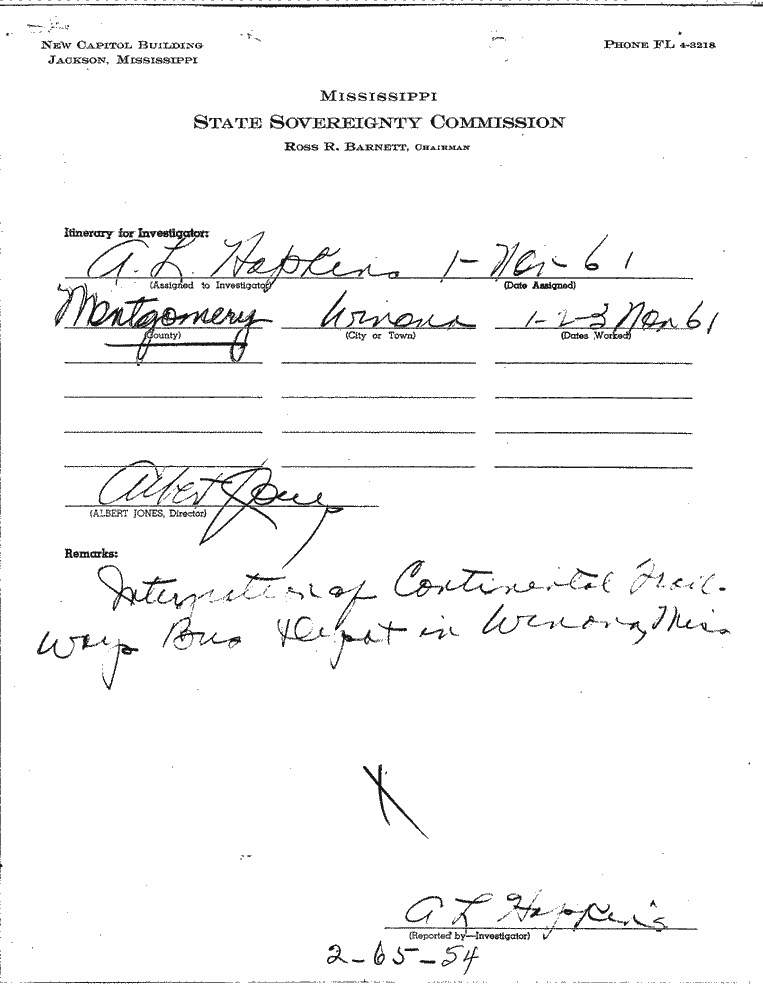 NEW CAPITOL BUILDING
JACKSON, MISSISSIPPI
PHONE FL 4-3218
MISSISSIPPI
STATE SOVEREIGNTY COMMISSION
ROSS R. BARNETT, CHAIRMAN
Itinerary for Investigator:
A. L. Hopkins 1- Nov- 61
(Assigned to Investigator) (Date Assigned)
Montgomery Winona 1-2-3 Nov 61
(County) (City or Town) (Dates Worked)
Albert Jones
(ALBERT JONES, Director)
Remarks:
Integration of Continental Trail-
ways Bus Depot in Winona, Miss
A L Hopkins
(Reported by—Investigator)
2-65-54